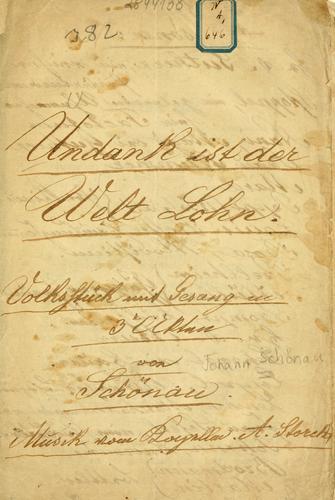 382
N
A,
646
Undank ist der
Welt Lohn.
Volksstück mit Gesang in
3 Akten
von
Johann Schönau
Schönau.
Musik vom Kapellm. A. Storch